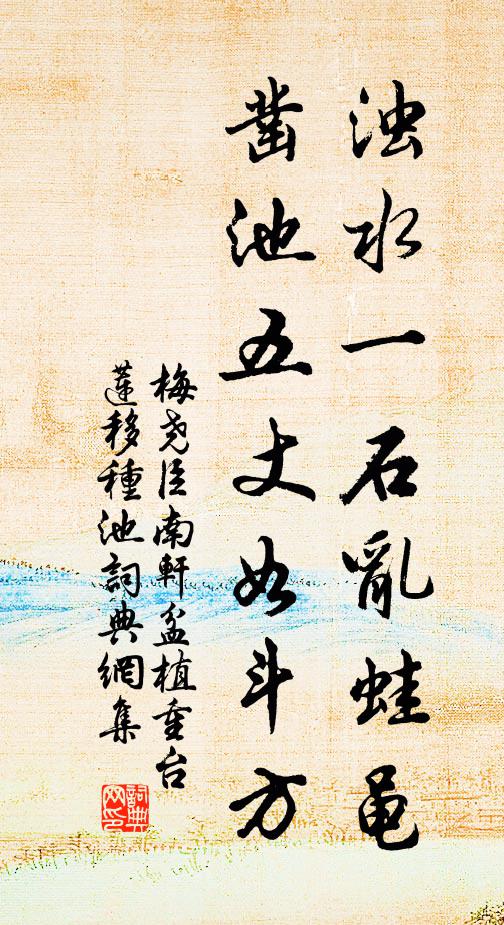 浊水一石亂蛙黾
凿池五丈如斗方
梅尧臣南軒盆植重台
蓮移種池詞典網集
詞典网印